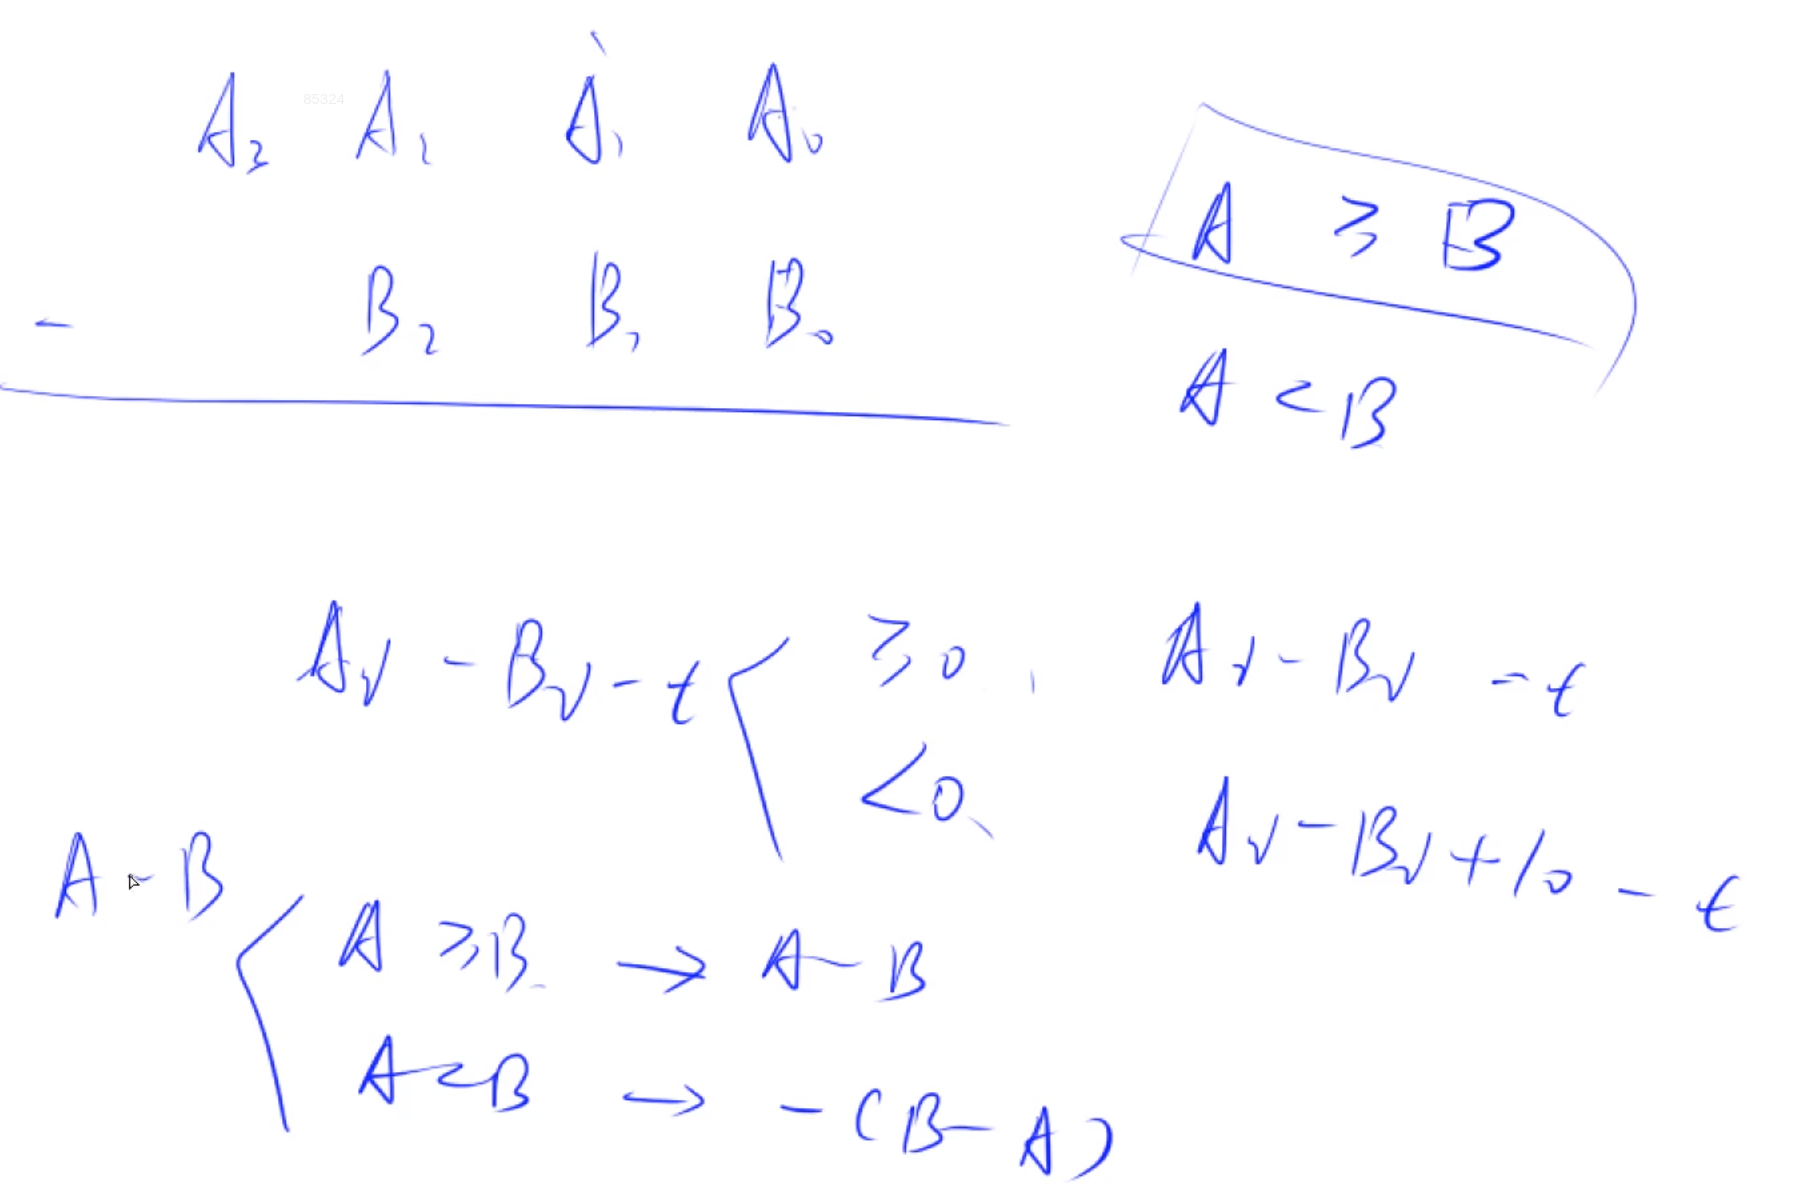 A₃ A₂ A₁ A₀
85324
- B₂ B₁ B₀
A ≥ B
A < B
Aᵢ - Bᵢ - t ≥0, Aᵢ - Bᵢ - t
<0, Aᵢ - Bᵢ + 10 - t
A - B
A ≥ B → A - B
A < B → - (B - A)